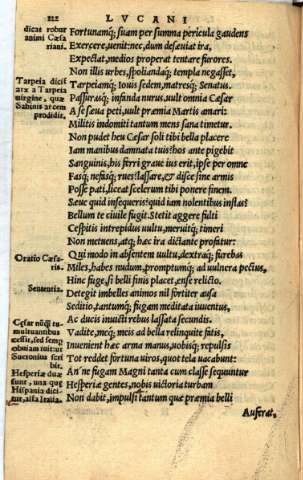 212 LVCANI
dicat robur
animi Cæsa
riani.
Tarpeia dici
arx a Tarpeia
uirgine, quæ
Sabinis arcem
prodidit.
Oratio Cæsa-
ris.
Sententia.
Cæsar nũq̃ tu-
multuantibus
cessit, sed semp
obuiam
Suetonius scri
bit.
Hesperiæ duæ
sunt, una quæ
Hispania dici
tur, alia Italia.
Fortunamq́; suam per summa pericula gaudens
Exercere, uenit: nec, dum desæuiat ira,
Expectat, medios properat tentare furores.
Non illis urbes, spoliandaq́; templa negasset,
Tarpeiamq́; Iouis sedem, matresq́; Senatus,
Passurasq́; infanda nurus, uult omnia Cæsar
A se sæua peti, uult præmia Martis amari:
Militis indomiti tantum mens sana timetur.
Non pudet heu Cæsar soli tibi bella placere
Iam manibus damnata tuis? hos ante pigebit
Sanguinis, his ferri graue ius erit, ipse per omne
Fasq́; nefasq́; rues? lassare, & disce sine armis
Posse pati, liceat scelerum tibi ponere finem.
Sæue quid insequeris? quid iam nolentibus instas?
Bellum te ciuile fugit. Stetit aggere fulti
Cespitis intrepidus uultu, meruitq́; timeri
Non metuens, atq́; hæc ira dictante profatur:
Qui modo in absentem uultu, dextraq́; furebas
Miles, habes nudum, promptumq́; ad uulnera pectus,
Hinc fuge, si belli finis placet, ense relicto.
Detegit imbelles animos nil fortiter ausa
Seditio, tantumq́; fugam meditata iuuentus,
Ac ducis inuicti rebus lassata secundis.
Vadite, meq́; meis ad bella relinquite fatis,
Inuenient hæc arma manus, uobisq́; repulsis
Tot reddet fortuna uiros, quot tela uacabunt:
An'ne fugam Magni tanta cum classe sequuntur
Hesperiæ gentes, nobis uictoria turbam
Non dabit, impulsi tantum quæ præmia belli
Auferat,